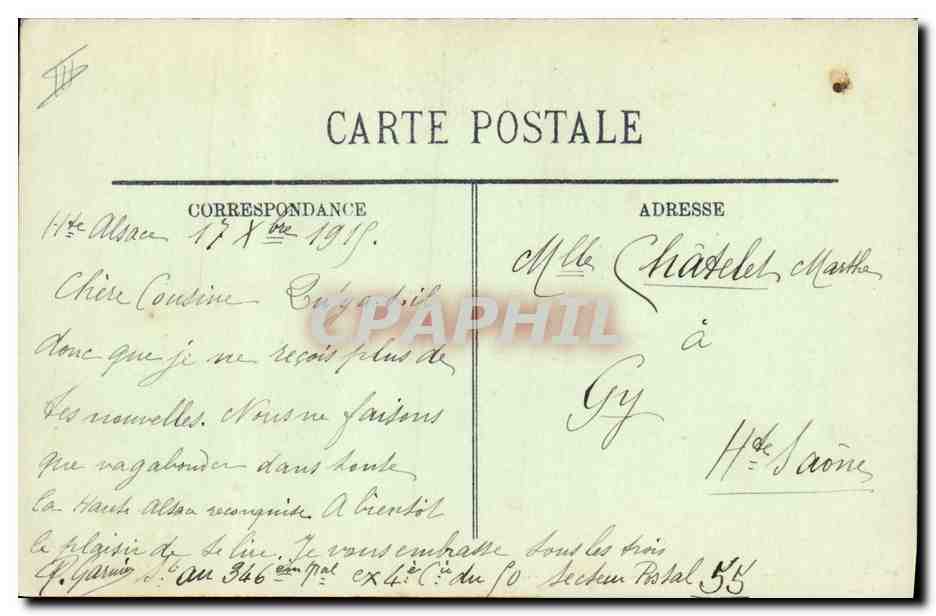 CARTE POSTALE
CORRESPONDANCE
Hte Alsace 17 Xbre 1915.
Chère Cousine Qu'y a t-il
donc que je ne reçois plus de
tes nouvelles. Nous ne faisons
que vagabonder dans toute
la Haute Alsace reconquise A bientôt
le plaisir de te lire. Je vous embrasse tous les trois
P. Garnier au 346 ex 4e Cie du 50 Secteur Postal 55
ADRESSE
Mlle Châtelet Marthe
à
Gy
Hte Saône
CPAPHIL